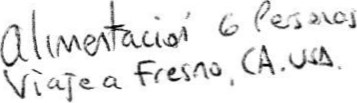 alimentación 6 Personas
Viaje a Fresno, CA. USA.